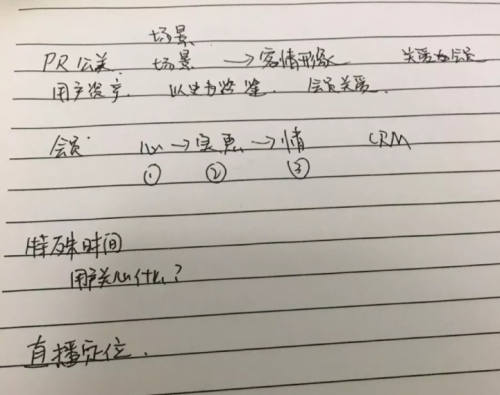 场景
PR公关 场景 → 客情形象 关爱加会员
用户资产. 以史为鉴. 会员关爱.
会员. 心 → 实惠 → 情 CRM
① ② ③
特殊时间
用户关心什么?
直播定位.